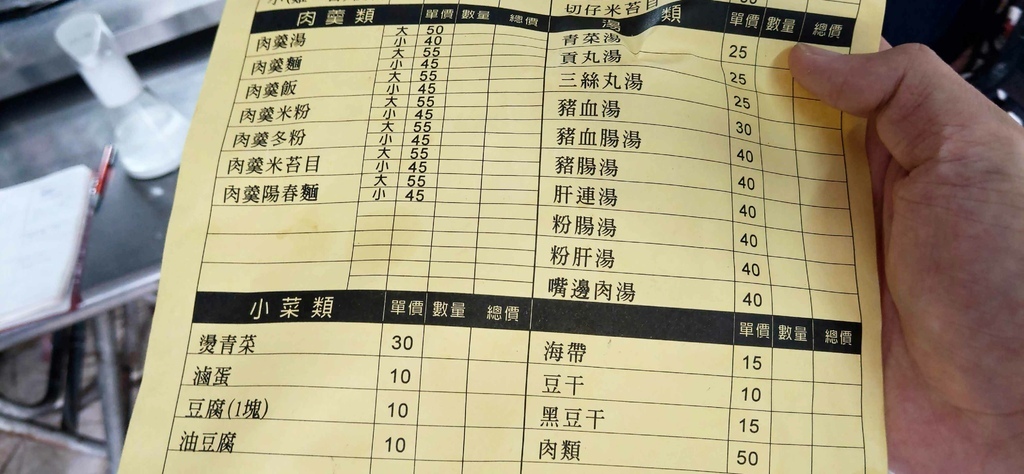 切仔米苔目
肉羹類 單價 數量 總價
肉羹湯 大 50
小 40
肉羹麵 大 55
小 45
肉羹飯 大 55
小 45
肉羹米粉 大 55
小 45
肉羹冬粉 大 55
小 45
肉羹米苔目 大 55
小 45
肉羹陽春麵 大 55
小 45
湯類 單價 數量 總價
青菜湯 25
貢丸湯 25
三絲丸湯 25
豬血湯 30
豬血腸湯 40
豬腸湯 40
肝連湯 40
粉腸湯 40
粉肝湯 40
嘴邊肉湯 40
小菜類 單價 數量 總價
燙青菜 30
滷蛋 10
豆腐(1塊) 10
油豆腐 10
單價 數量 總價
海帶 15
豆干 10
黑豆干 15
肉類 50